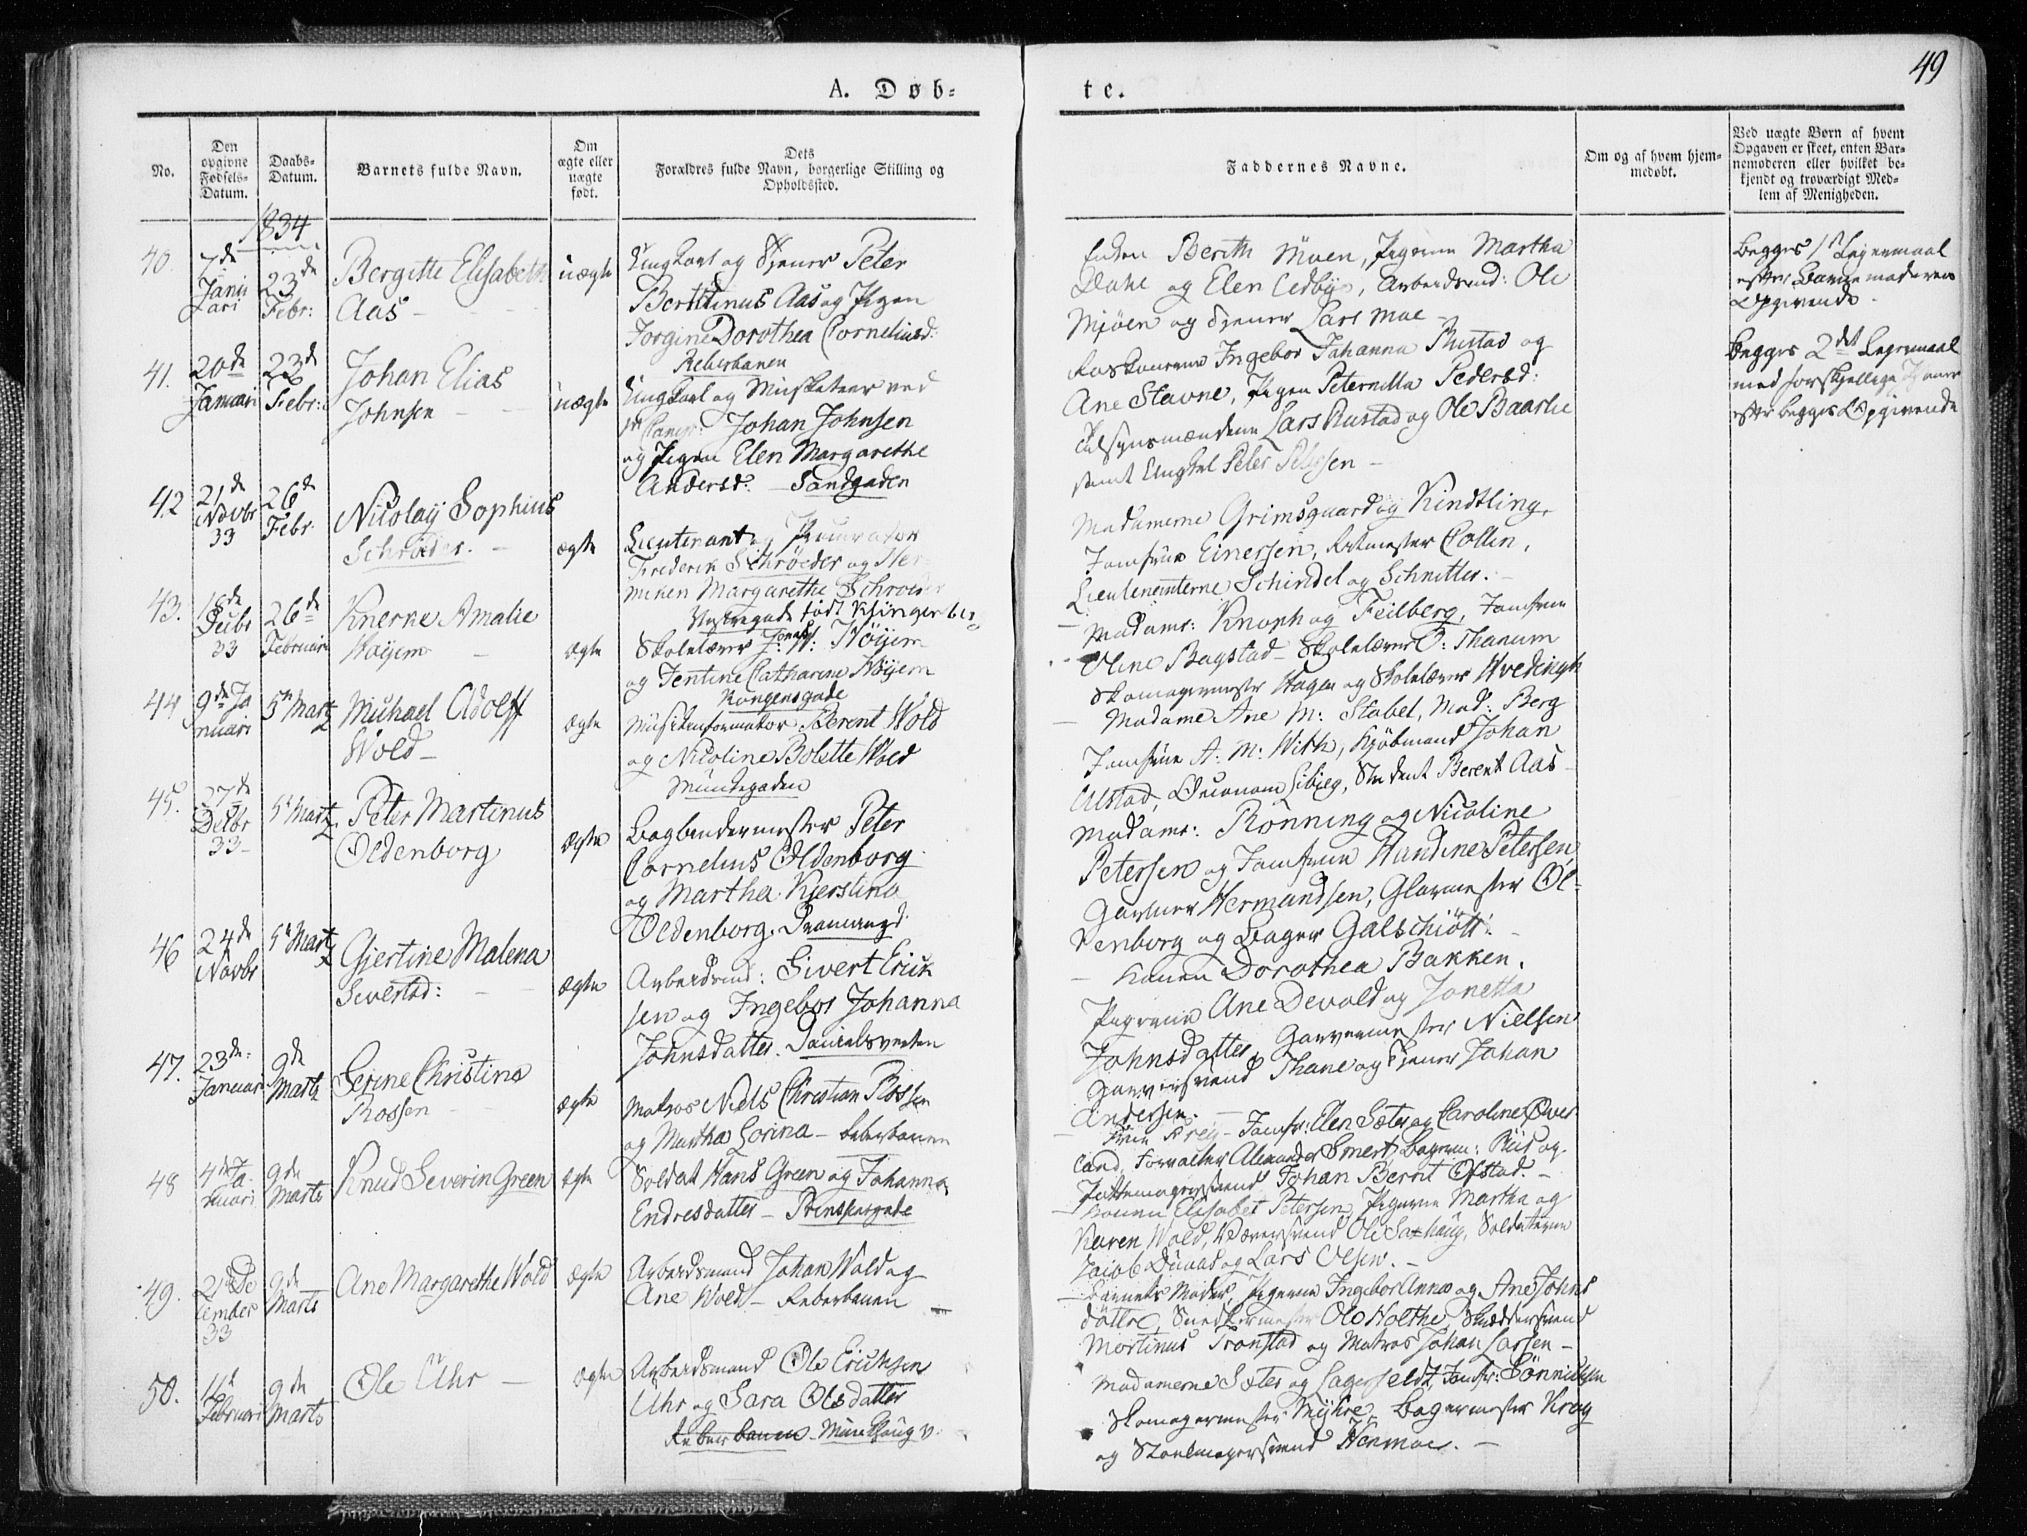 49
A. Døb-
te.
No.
Den opgivne Fødsels-Datum.
Daabs-Datum.
Barnets fulde Navn.
Om ægte eller uægte født.
Dets Forældres fulde Navn, borgerlige Stilling og Opholdssted.
Faddernes Navne.
Om og af hvem hjem-medøbt.
Ved uægte Børn af hvem Opgaven er skeet, enten Bar-nemoderen eller hvilket be-kjendt og troværdigt Med-lem af Menigheden.
1834
40. 7de Januari
23de Febr:
Bergitte Elisabeth
Aas
uægte
Ungkarl og Tjener Peter
Berntinus Aas og Pigen
Jorgine Dorothea Corneliusd:
Reberbanen
Enken Berith Moen, Pigerne Martha
Dahl og Elen Ledby, Arbeidsmd: Ole
Mjøen og Tjener Lars Moe
Begges 1ste Leiermaal
efter Barnemoderens
Opgivende
41. 20de Januari
23de Febr:
Johan Elias
Johnsen
uægte
Ungkarl og Musketeer ved
Johan Johnsen
og Pigen Elen Margarethe
Andersd: Sandgaden
Ingebor Johanna Rustad og
Ane Stavne, Pigen Peternilla Pedersd:
Lars Rustad og Ole Baarlie
samt Ungkal Peter Petersen
Begges 2det Leiermaal
med forskjellige
efter begges Opgivende
42 21de Novbr 33
26de Febr.
Nicolay Sophius
Schrøder.
ægte
Lieutenant og Procurator
Frederik Schrøeder og Her-
minen Margarethe Schroeder
født Klingenberg
Madamerne Grimsgaard og Kindtling,
Jomfrue Einersen, Collin,
Lieutenanterne Schindel og Schnitter.
43. 18de Decbr 33
26de Februari
Knerke Amalie
Høyem
ægte
Skolelærer Jonas W: Høyem
og Jentine Catharine Høyem
Kongensgade
Madame: Knoph og Feilberg, Jomfrue
Oline Bagstad - Skolelærer O: Thanum
Skomagermester Hagen og Skolelærer Hvedingh
44 9de Januari
5te Martz
Michael Adolff
Wold
ægte
Musikinformator Berent Wold
og Nicoline Bolette Wold
Munkegaden
Madame Ane M: Stabel, Mad: Berg
Jomfrue A. M: With, Kjøbmand Johan
Alstad, Oeconom Student Berent Aas
45. 27de Decbr 33
5te Martz
Peter Martinus
Oldenborg
ægte
Bogbindermester Peter
Cornelius Oldenborg
og Martha Kjerstina
Oldenborg.
Madame: Rønning og Nicoline
Petersen og Jomfrue Handine Petersen,
Garver Hermandsen, Glarmester Ol-
denborg og Bager Galschiött.
46 24de Novbr
5te Martz
Gjertine Malena
Sivertsd:
ægte
Arbeidsmd: Sivert Erick
sen og Ingebor Johanna
Johnsdatter.
Konen Dorothea Bakken.
Pigerne Ane Devold og Jonetta
Johnsdatter, Garvermester Nielsen
Garversvend Thane og Tjener Johan
Andersen.
47. 23de Januar
9de Martz
Serine Christine
Rossen
ægte
Matros Niels Christian Rossen
og Martha Sorina - Reberbanen
Frue Krey - Jomfr: Elen Sæter og Caroline Over
land, Forvalter Alexander Smert, Riis og
Pottemagersvend Johan Bernt Ofstad.
48 4de Januari
9de Marts
Knud Severin Green
ægte
Soldat Hans Green og Johanna
Endresdatter - Prinsensgade
Konen Elisabet Petersen, Pigerne Martha og
Karen Wold, Væversvend Ole Sæthaug, Soldaterne
Jacob og Lars Olsen.
49. 21de December 33
9de Marts
Ane Margarethe Wold
ægte
Arbeidsmand Johan Wold og
Ane Wold - Reberbanen
Barnets Moder, Pigerne Ingebor Anna og Ane Johns
datter, Snedkermester Ole Holthe, Skræddersvend
Mortinus Tronstad og Matros Johan Larsen
50. 11te Februari
9de Marts
Ole Uhr
ægte
Arbeidsmand Ole Ericksen
Uhr og Sara Olsdatter
Reberbanen - Munkhaug v.
Madamerne Sæter og Lagerfeldt, Jomfr: Sønnichsen
Skomagermester Myhre, Bagermester Krog
og Stoelmagersvend Henmoe.